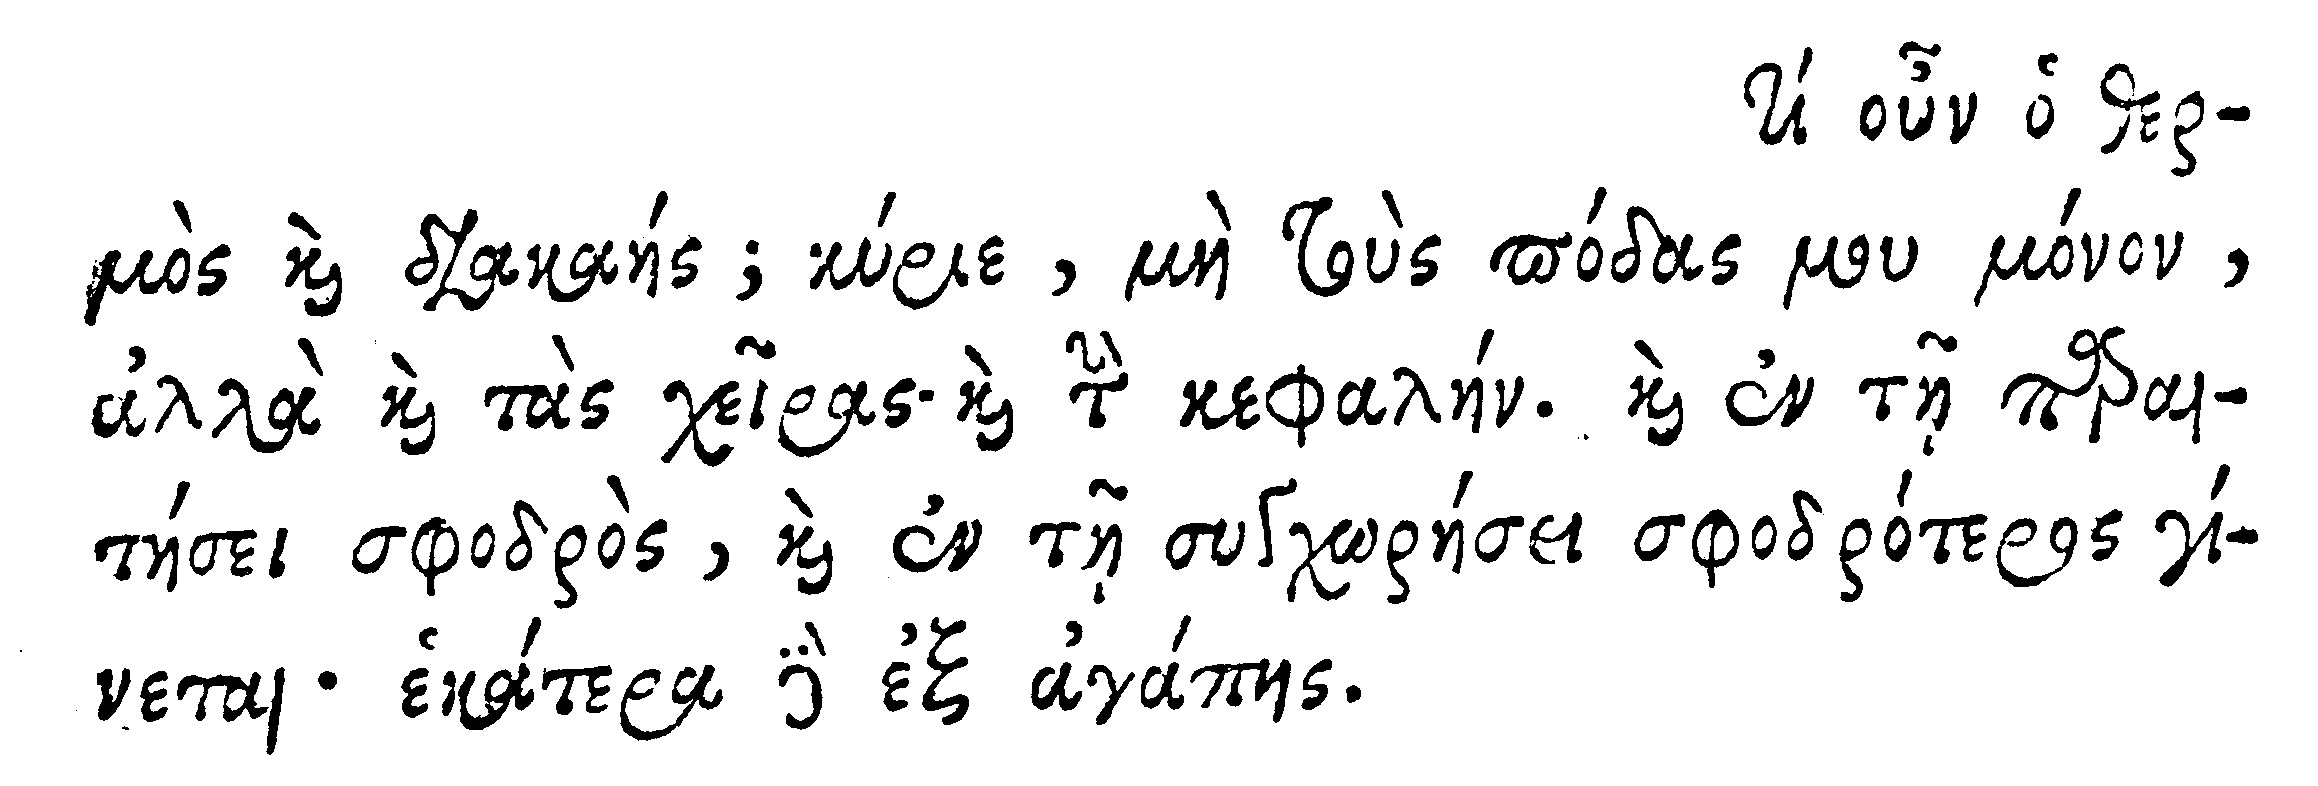 Τί οὖν ὁ θερ-
μὸς καὶ διακαής; κύριε, μὴ τοὺς πόδας μου μόνον,
ἀλλὰ καὶ τὰς χεῖρας· καὶ τὴν κεφαλήν. καὶ ἐν τῇ παραι-
τήσει σφοδρὸς, καὶ ἐν τῇ συγχωρήσει σφοδρότερος γί-
νεται· ἑκάτερα δὲ ἐξ ἀγάπης.